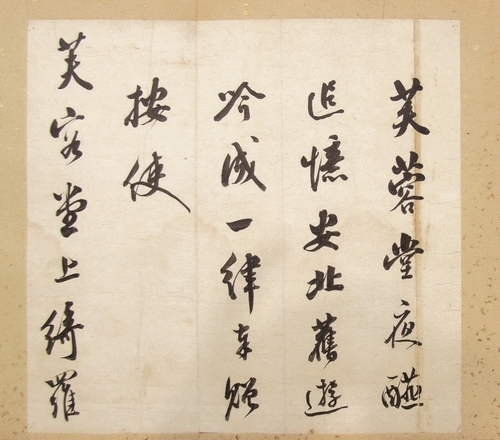 芙蓉堂夜醼
追憶安北舊遊
吟成一律奉贈
按使
芙容堂上綺羅